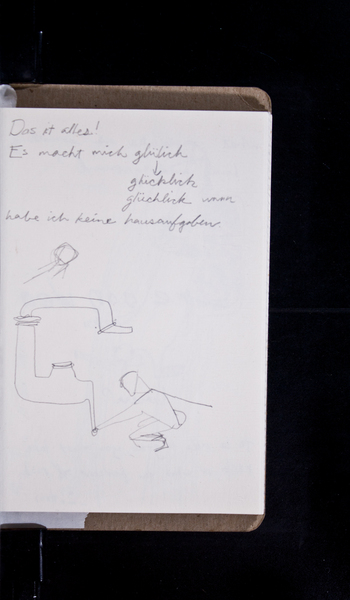 Das ist alles!
Es macht mich glülich
glücklick
glüchlick wann
habe ich keine hausaufgaben.